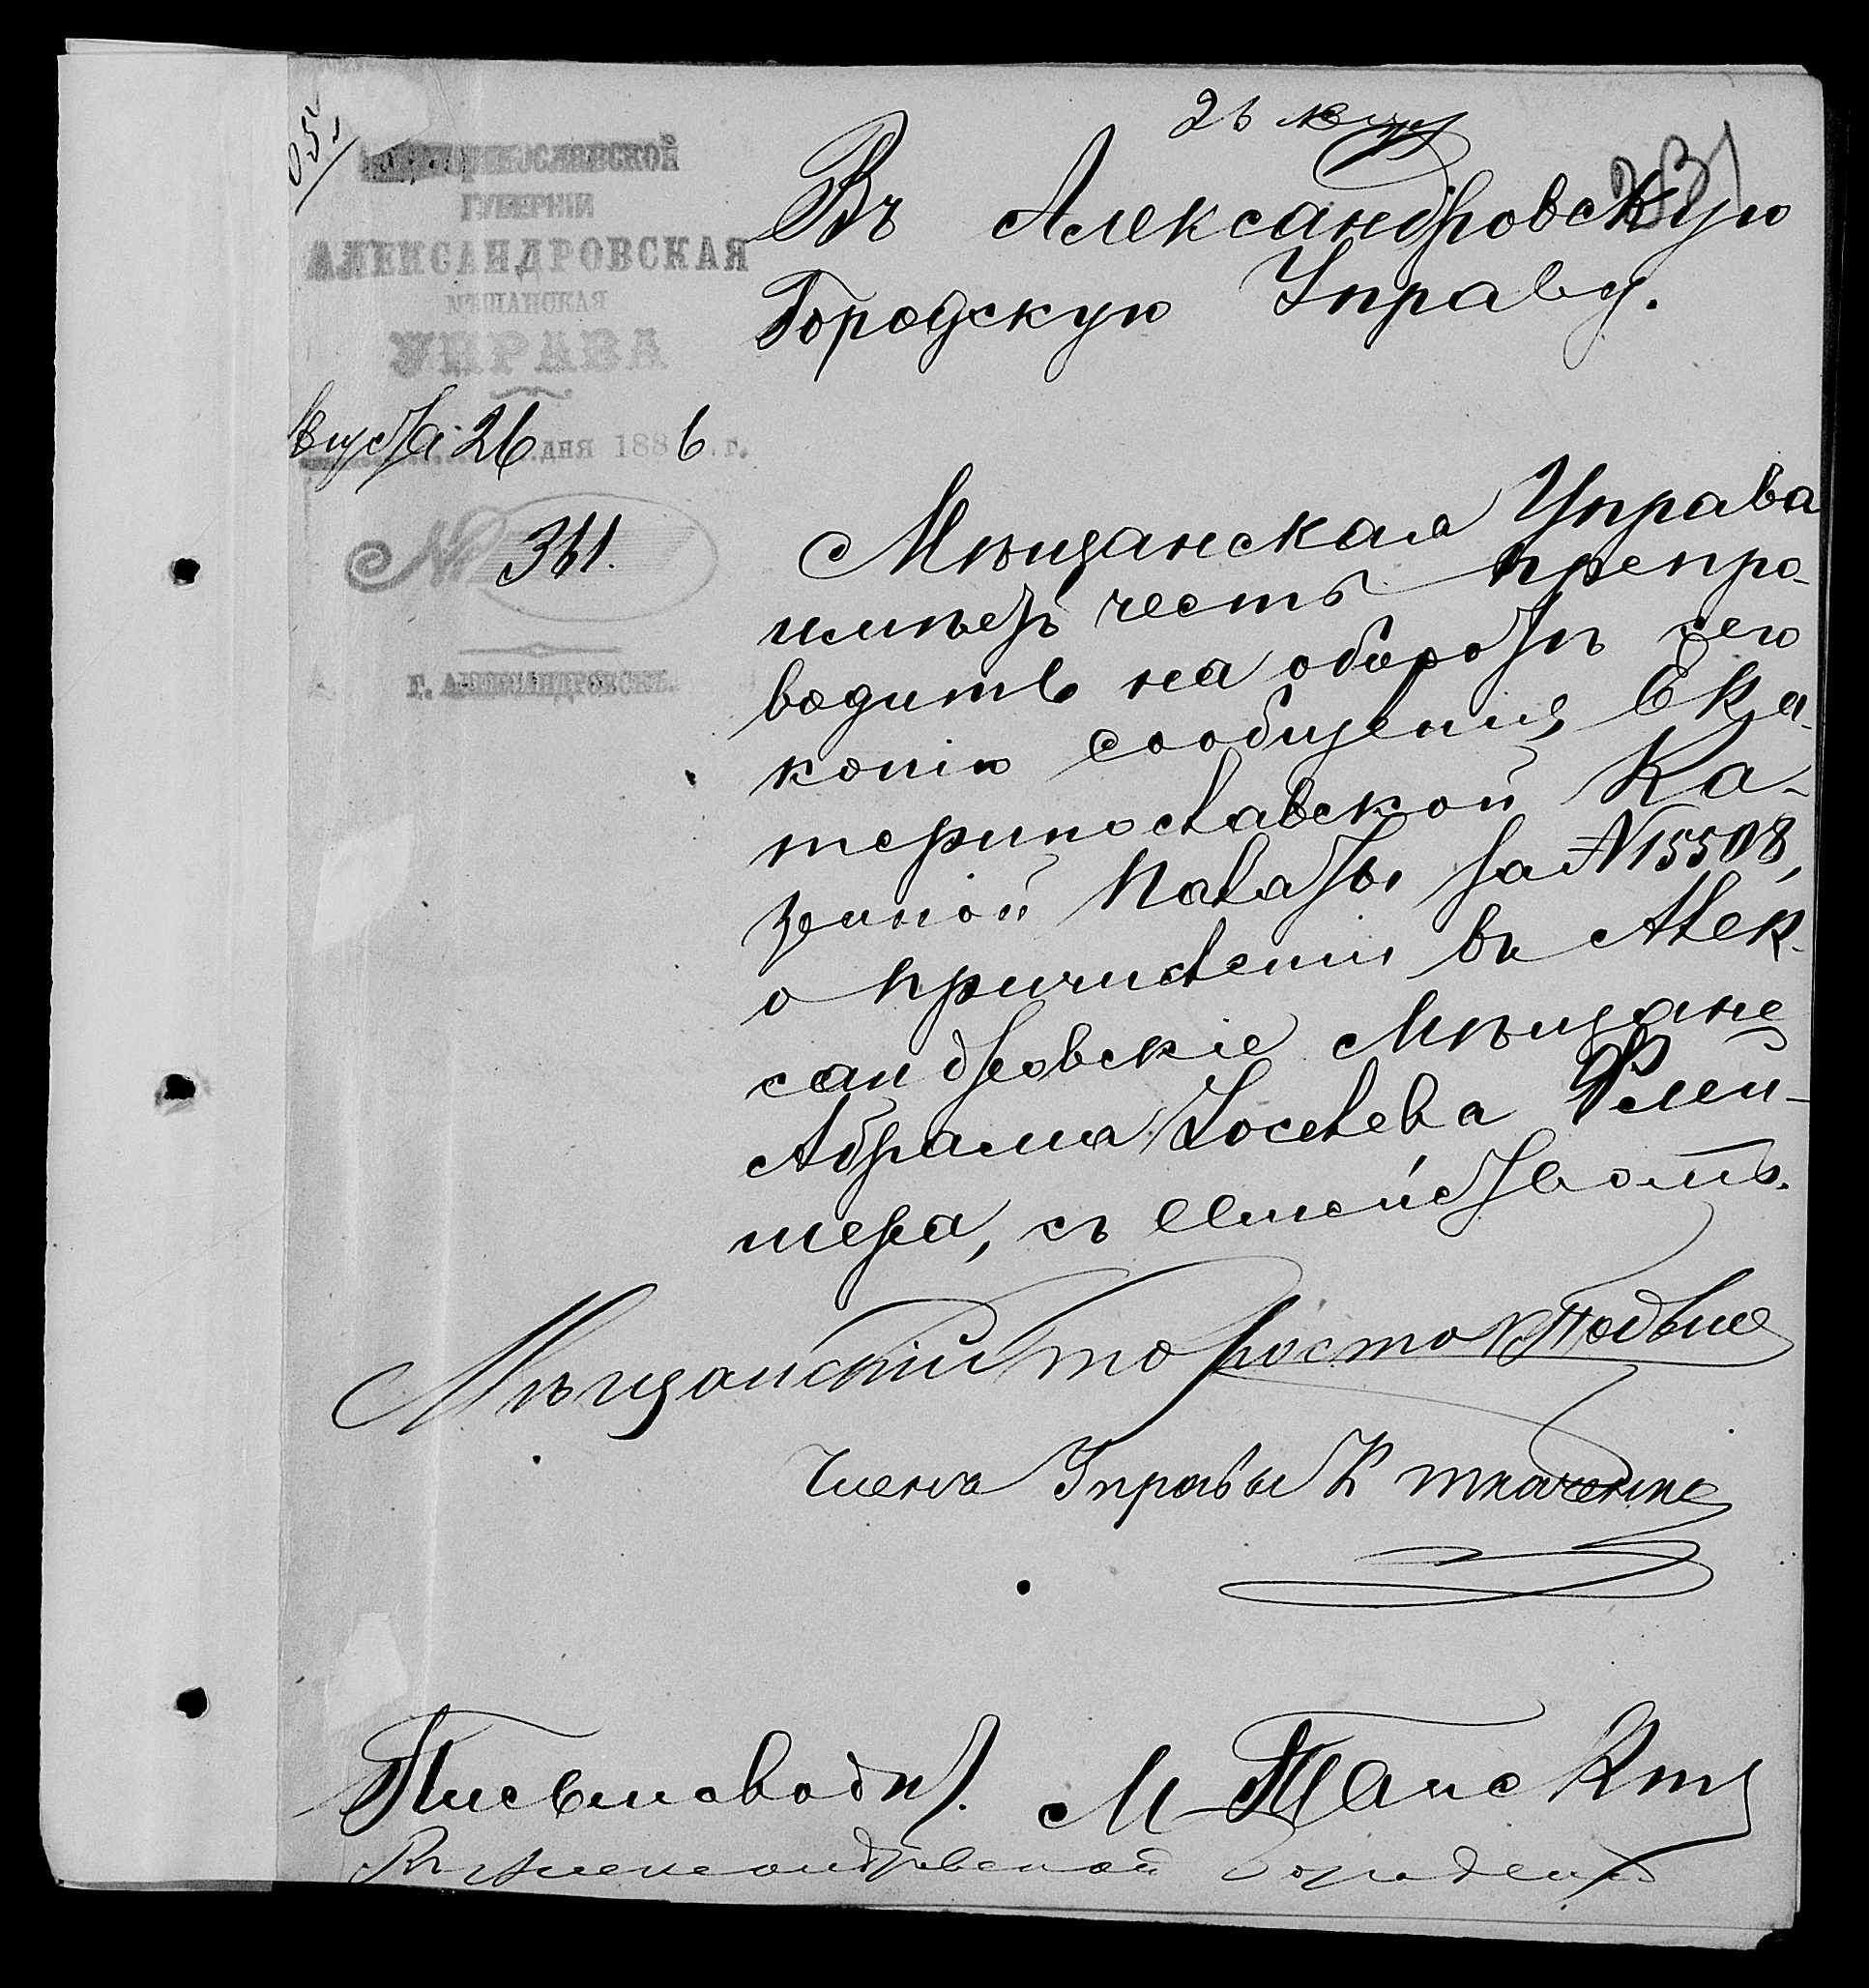 231
Екатеринославской
ГУБЕРНІИ
АЛЕКСАНДРОВСКАЯ
МѢЩАНСКАЯ
УПРАВА
августа 26 дня 1886 г.
№ 361.
г. АЛЕКСАНДРОВСКЪ.
Въ Александровскую
Городскую Управу.
Мѣщанская Управа
имѣетъ честь препро-
водить на оборотѣ сего
копію сообщенія Ека-
теринославской Ка-
зенной Палаты за № 15508,
о причисленіи въ Алек-
сандровскіе Мѣщане
Абрама Іоселева Флей-
шера, съ Семействомъ.
Мѣщанскій Староста
Членъ Управы К Ткаченко
Письмоводит. М
Въ Александровской Городской